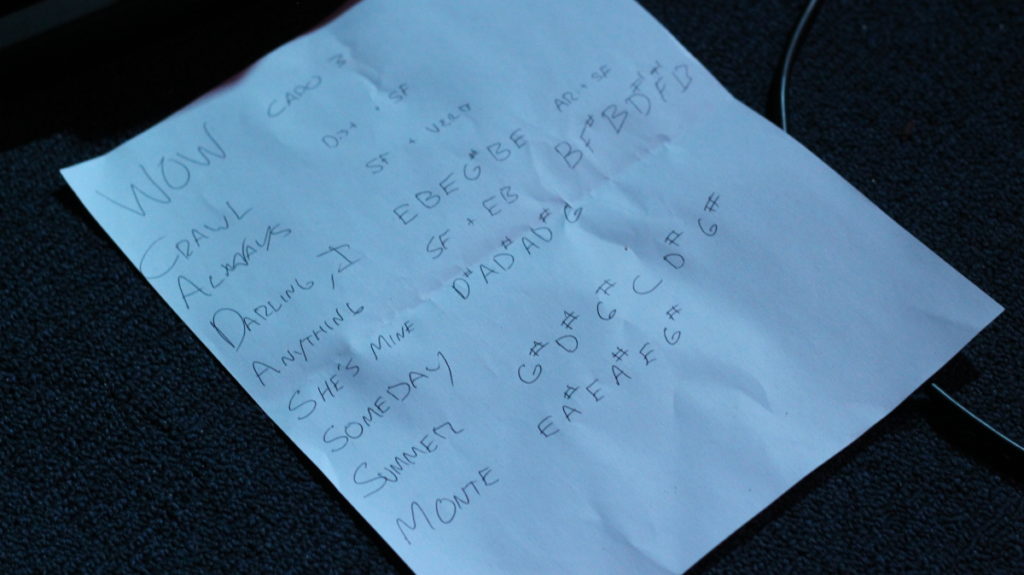 WOW CAPO 3
CRAWL Dist + SF
ALWAYS SF + VERB
DARLING, I EBEG#BE AR + SF
ANYTHING SF + EB BF#BD#F#B
SHE'S MINE D#AD#AD#G
SOMEDAY
SUMMER G# D# G# C D# G#
MONTE E A# E A# E G#